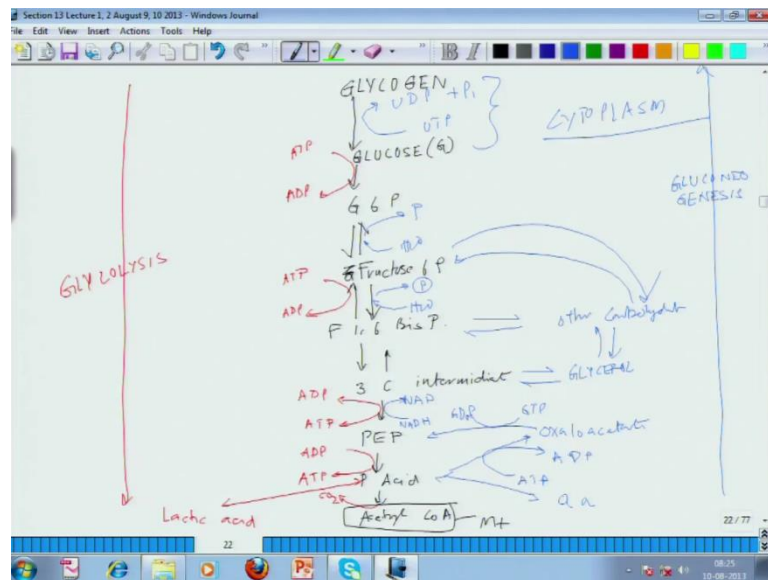 Section 13 Lecture 1, 2 August 9, 10 2013 - Windows Journal
File Edit View Insert Actions Tools Help
GLYCOGEN
UDP + Pi
UTP
CYTOPLASM
GLUCOSE (G)
ATP
ADP
GLUCONEO
GENESIS
G 6 P
P
H2O
GLYCOLYSIS
Fructose 6 P
ATP
ADP
P
H2O
F 1, 6 Bis P.
other Carbohydrate
3 C intermidiat
GLYCERAL
ADP
ATP
NAD
NADH
GDP
GTP
PEP
Oxaloacetate
ADP
ATP
P Acid
ADP
ATP
a a
CO2
Lactic acid
Acetyl CoA
Mt
22 / 77
22
08:25
10-08-2013